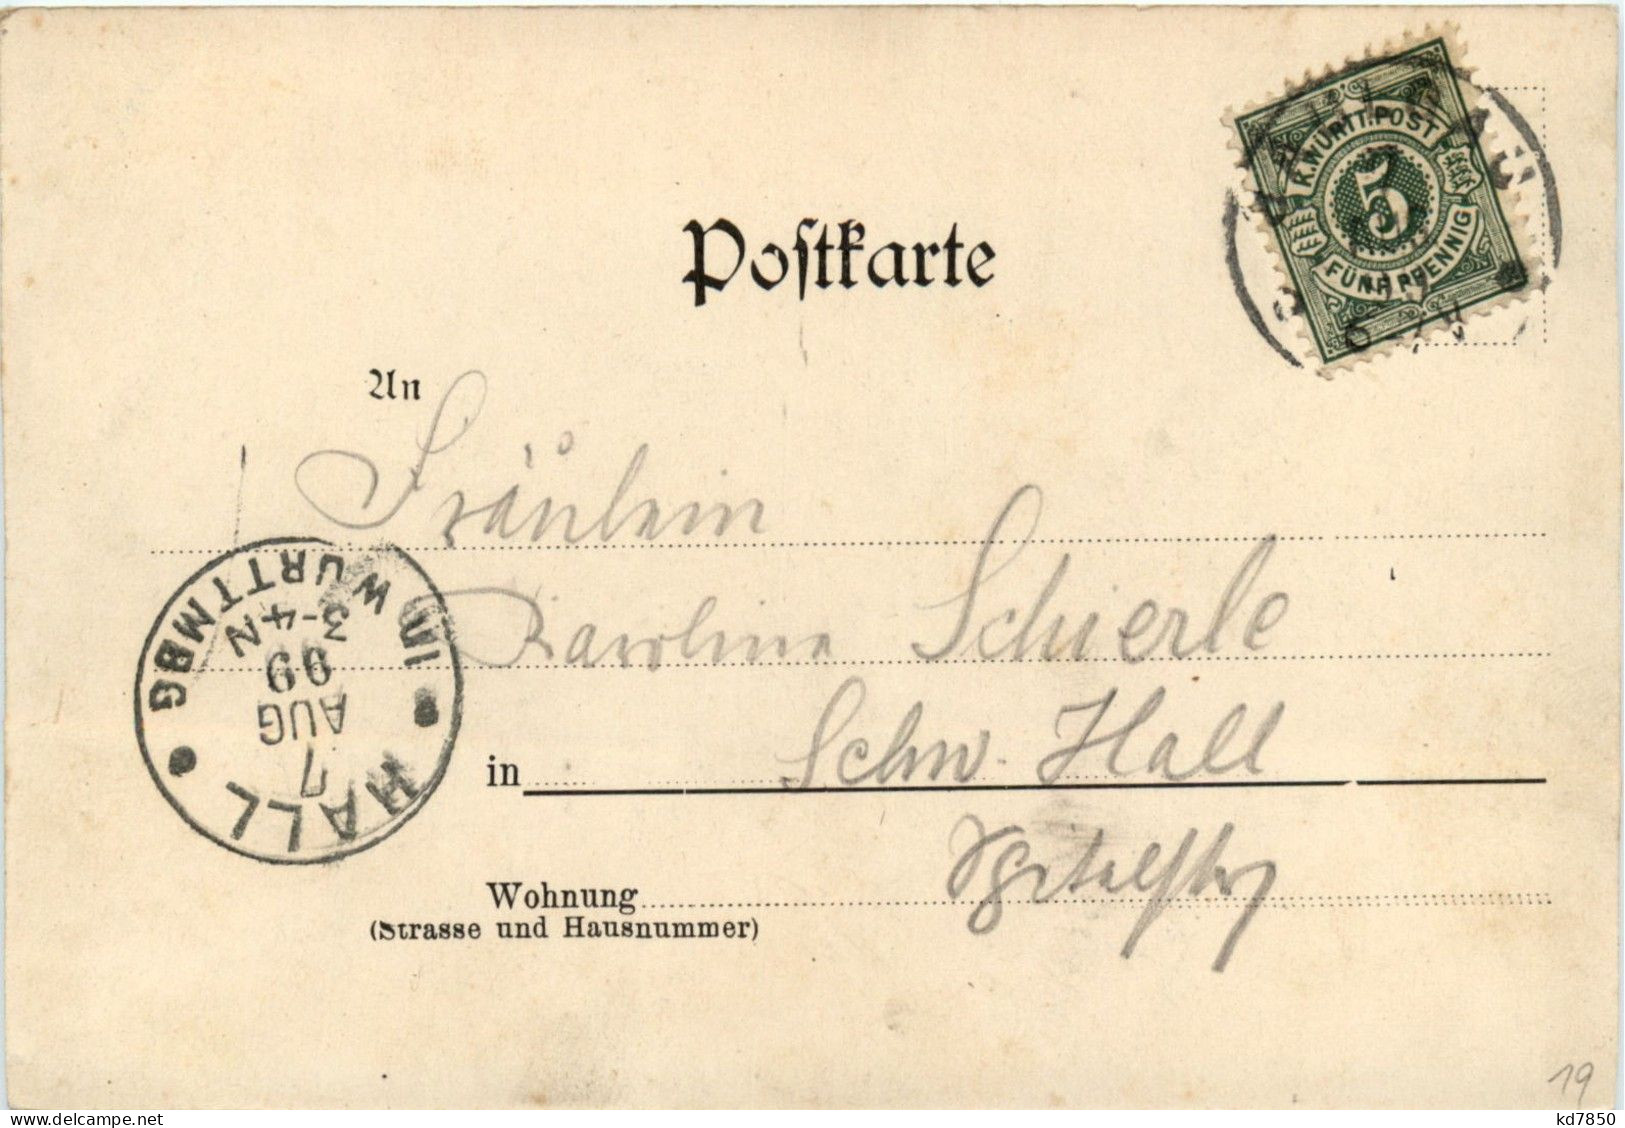 Postkarte
K. WÜRTT. POST
5
FÜNF PFENNIG
An
Fräulein
Karoline Schierle
in Schw. Hall
Wohnung
(Strasse und Hausnummer)
HALL
7
AUG
99
3-4N
IN WÜRTTMBG
19
kd7850